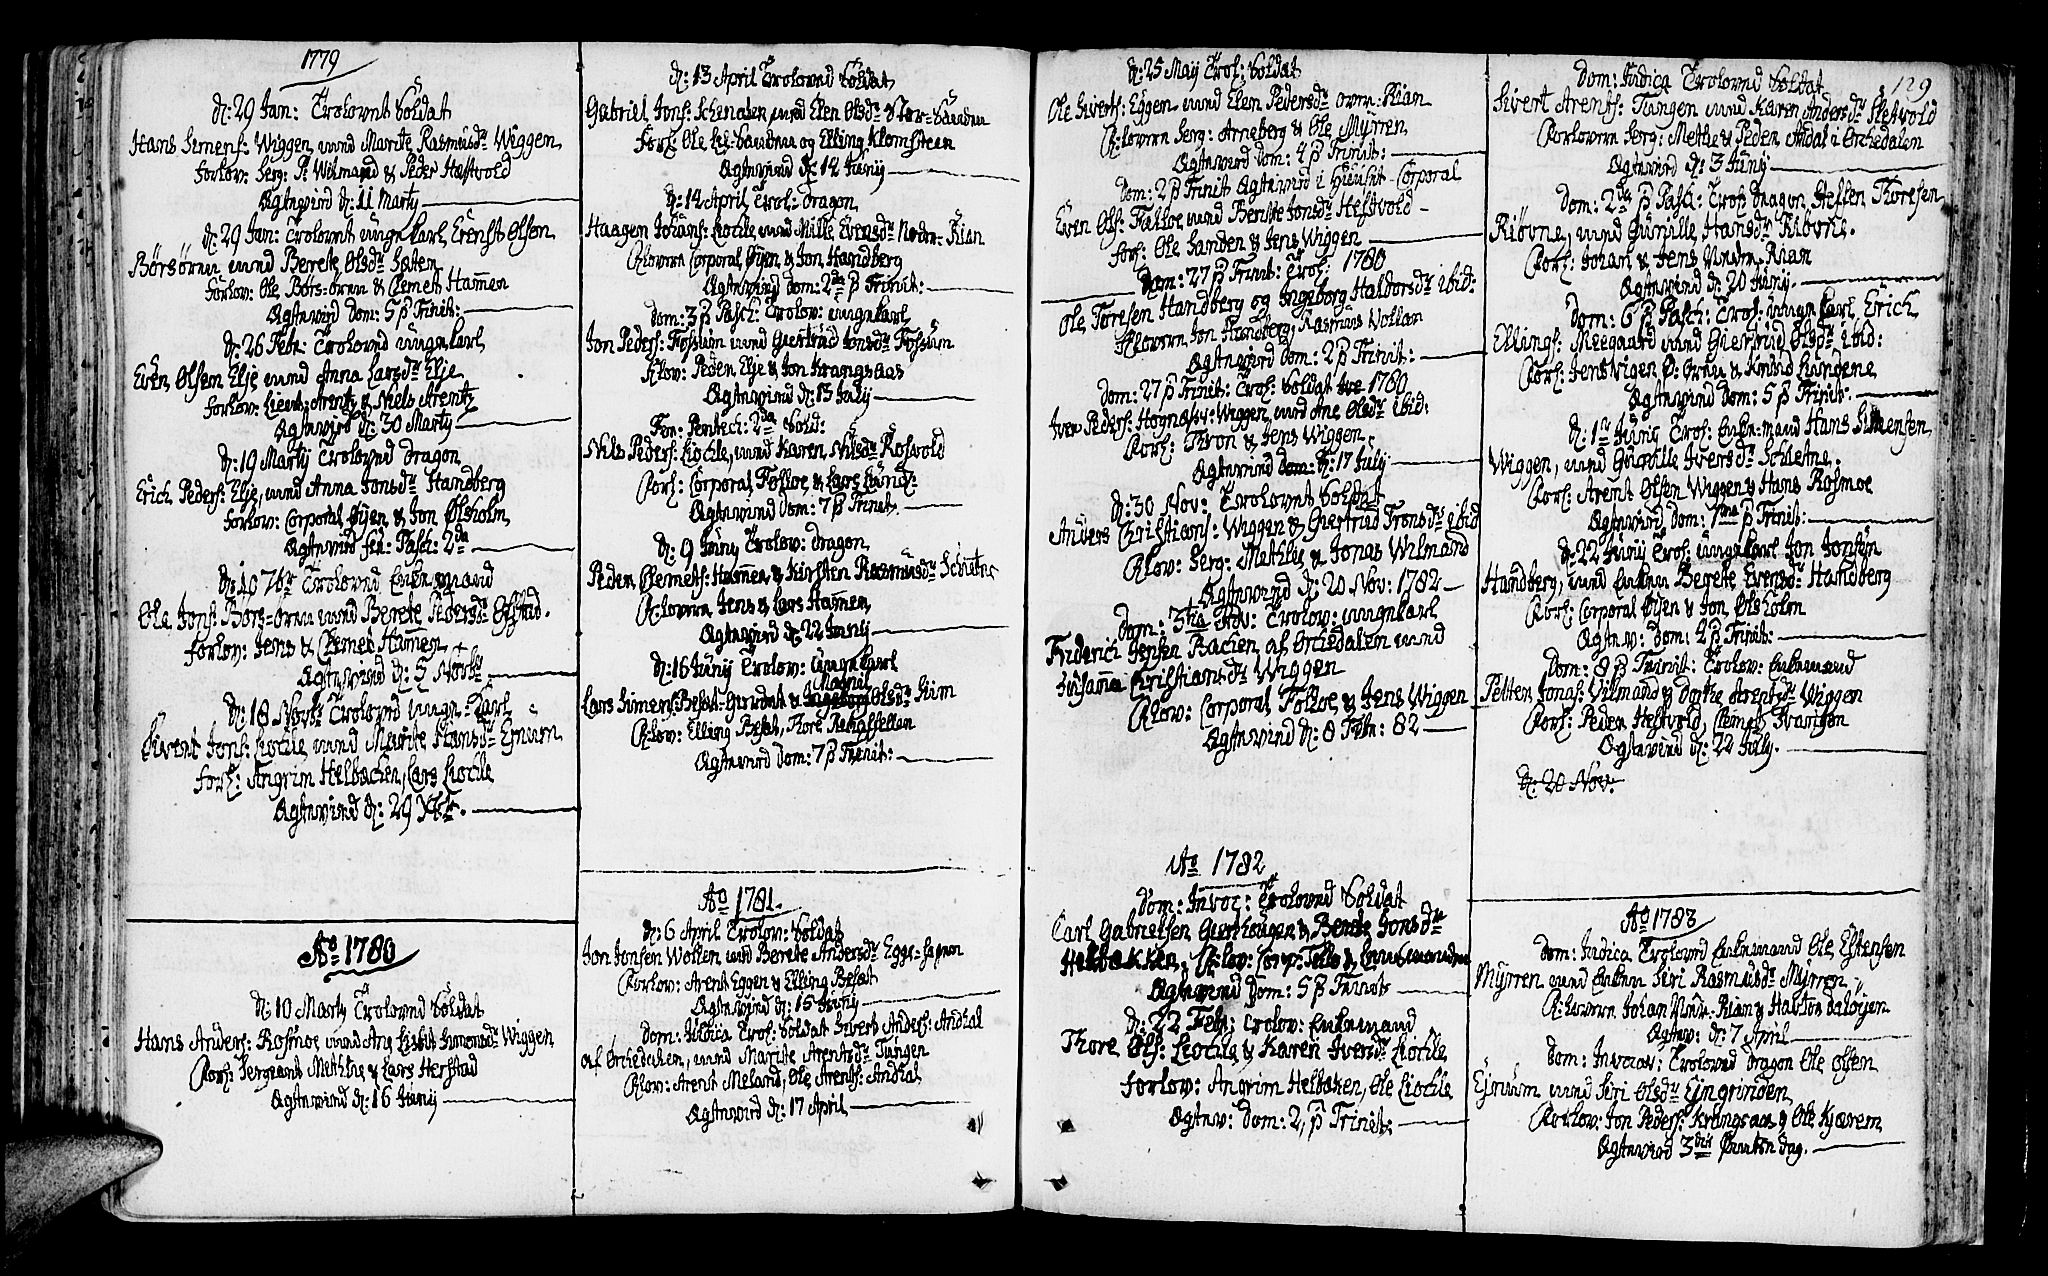 1779
d: 29 Jan: Trolovet Soldat
Hans Simens: Wiggen med Marite Rasmusdr Wiggen
forlov: Serg: P: Wilmand & Peder Hastvold
Ægtevied d: 11 Marty
d: 29 Jan: Trolovet ungkarl Erenst Olsen
Børsøren med Berete Olsdr Saten
forlov: Ole Børs-øren & Clemet Hammen
Ægteviet Dom: 5 p Trinit:
d: 26 Febr: Troloved ungkarl
Even Olsen Elje med Anna Larsdr Elje
forlov: Lieut: Arentz & Niels Arentz
Ægteviet d: 30 Marty
d: 19 Marty Troloved Dragon
Erich Peders: Elje, med Anna Jonsdr Handberg
forlov: Corporal Øyen & Jon Ølsholm
Ægteviet fer: Pasch: 2da
d: 10 7br Troloved Enkemand
Ola Jons: Børs-øren med Berete Pedersdr Opstad.
forlov: Jens & Clemet Hammen
Ægteviet d: 5 Novbr
d: 18 Novbr Trolovet ungkarl
Sivert Jons: Leocle med Marite Hansdr Ejnum
forl: Angrim Helbachen, Lars Leocle
Ægteviet d: 29 Xbr.
Ao 1780
d: 10 Marty Trolovet Soldat
Hans Anders: Rosmoe med Ane Lisbet Simonsdr Wiggen
Forl: Sergeant Methlie & Lars Herstad
Ægteviet d: 16 Juny
d: 13 April Trolovet Soldat
Gabriel Jons: med Elen Olsdr Stor-Sanden
forl: Ole Lil-Sanden og Elling Klomsteen
Ægteviet d: 14 Juny
d: 14 April Trol: Dragon
Haagen Johans: Leocle med Mille Evensdr Neder-Rian
Forlovere Corporal Øyen & Jon Handberg
Ægteviet Dom: 2da p Trinit:
Dom: 3 p Pasch: Trolov: ungkarl
Jon Peders: Fosslum med Giertrud Jonsdr Fosslum
Forlov: Peder Elje & Jon Krangsaas
Ægteviet d: 13 July
Fer: Pentec: 2da Sold:
Nils Peders: Leocle, med Karen Nilsdr Rosvold
Forl: Corporal Folloe, & Lars Lund:
Ægteviet Dom: 7 p Trinit.
d: 9 Juny Trolov: Dragon
Peder Clemets: Hammen & Kirsten Rasmusdr
Forlovere Jens & Lars Hammen
Ægteviet d: 22 Juny
d: 16 Juny Trolov: ungkarl
Magnel
Lars Simens: Besat-Gierdet & Ingeborg Olsdr Lium
Forlov: Elling Besat, Tore
Ægteviet Dom: 7 p Trinit:
Ao 1781.
d: 6 April Trolov: Soldat
Jon Jonsen Wollen med Berete Andersdr Egge-
Forlov: Arent Eggen & Elling Besat
Ægteviet d: 15 Juny
Dom: Trol: Soldat Sivert Anders: Anddal
af Orchedalen, med Marite Arentsdr Tungen
Forlov: Arent Meland, Ole Arents: Anddal
Ægteviet d: 17 April
d: 25 May Trol: Soldat
Ole Siverts: Eggen med Elen Pedersdr over-Rian
Forlovere Serg: Arneberg & Ole Myrren
Ægteviet Dom: 4 p Trinit:
Dom: 2 p Trinit Ægteviet i Huuset Corporal
Even Ols: Folloe med Berete Jonsdr Hestvold
forl: Ole Sanden & Jens Wiggen
Dom: 27 p Trinit: Trol: 1780
Ole Toresen Handberg og Ingeborg Haldorsdr ibid:
Forlovere Jon Handberg, Rasmus Vollan
Ægteviet Dom: 2 p Trinit:
Dom: 27 p Trinit: Trol: Soldat 1780
Iver Peders: Hognes: Wiggen, med Ane Olsdr ibid:
Forl: Thron & Jens Wiggen
Ægteviet d: 17 July
d: 30 Nov: Trolovet Soldat
Anders Christians: Wiggen & Giertrud Tronsdr ibid
Forlov: Serg: Methlie & Jonas Wilmand
Ægteviet d: 20 Nov: 1782
Dom: 3tia Adv: Trolov: ungkarl
Friderici Jensen Bachen af Orchedalen med
Susanna Christiansdr Wiggen
Forlov: Corporal Folloe & Jens Wiggen
Ægteviet d: 8 Febr: 82
Ao 1782
Dom: Invoc: Trolovet Soldat
Carl Gabrielsen & Berete Jonsdr
Helbakken, Forlov: Corp: Follo &
Ægteviet Dom: 5 p Trinit
d: 22 Febr: Trolov: Enkemand
Thore Ols: Leocle & Karen Iversdr Leocle
forlov: Angrim Helbaken, Ole Leocle
Ægtev: Dom: 2, p Trinit:
129
Dom: Judica Trolovet Soldat
Sivert Arents: Tungen med Karen Andersdr
Forlovere Serg: Methlie & Peder Andal i Orchedalen
Ægteviet d: 3 Juny
Dom: 2da p Pasch: Trol: Dragon Steffen Toresen
Riøvne, med Gunille Hansdr Riøvne.
Forl: Johan & Jens Neder-Rian
Ægteviet d: 20 Juny.
Dom: 6 p Pasch: Trol: ungkarl Erich
Ellings: Meegaard med Giertrud Olsdr ibid:
Forl: Jens Wigen & Knud
Ægteviet Dom: 5 p Trinit:
d: 1st Juny Trol: Enkemand Hans Simensen
Wiggen, med Gunille Iversdr Schietne.
Forl: Arent Olsen Wiggen & Hans Rosmoe
Ægteviet Dom: 1ma p Trinit:
d: 22 Juny Trol: ungkarl Jon Jonsen
Handberg, med Enken Berete Evensdr Handberg
Forl: Corporal Øyen & Jon Olsholm
Ægtev: Dom: 2 p Trinit:
Dom: 8 p Trinit: Trolov: Enkemand
Petter Jonas: Vilmand & Dortre Arentsdr Wiggen
Forl: Peder Hestvold, Clemet
Ægteviet d: 22 July.
d: 20 Nov:
Ao 1783
Dom: Judica Trolovet Enkemand Ole Estensen
Myrren med Enken Siri Rasmusdr Myrren
Forlovere Johan Neder-Rian & Halvor
Ægtev: d: 7 April
Dom: Trolovet Dragon Ole Olsen
Ejnum med Siri Olsdr Ejngrinden
Forlov: Jon Peders: Krangsaas & Ole Kjærem
Ægteviet 3die Paaskedag.